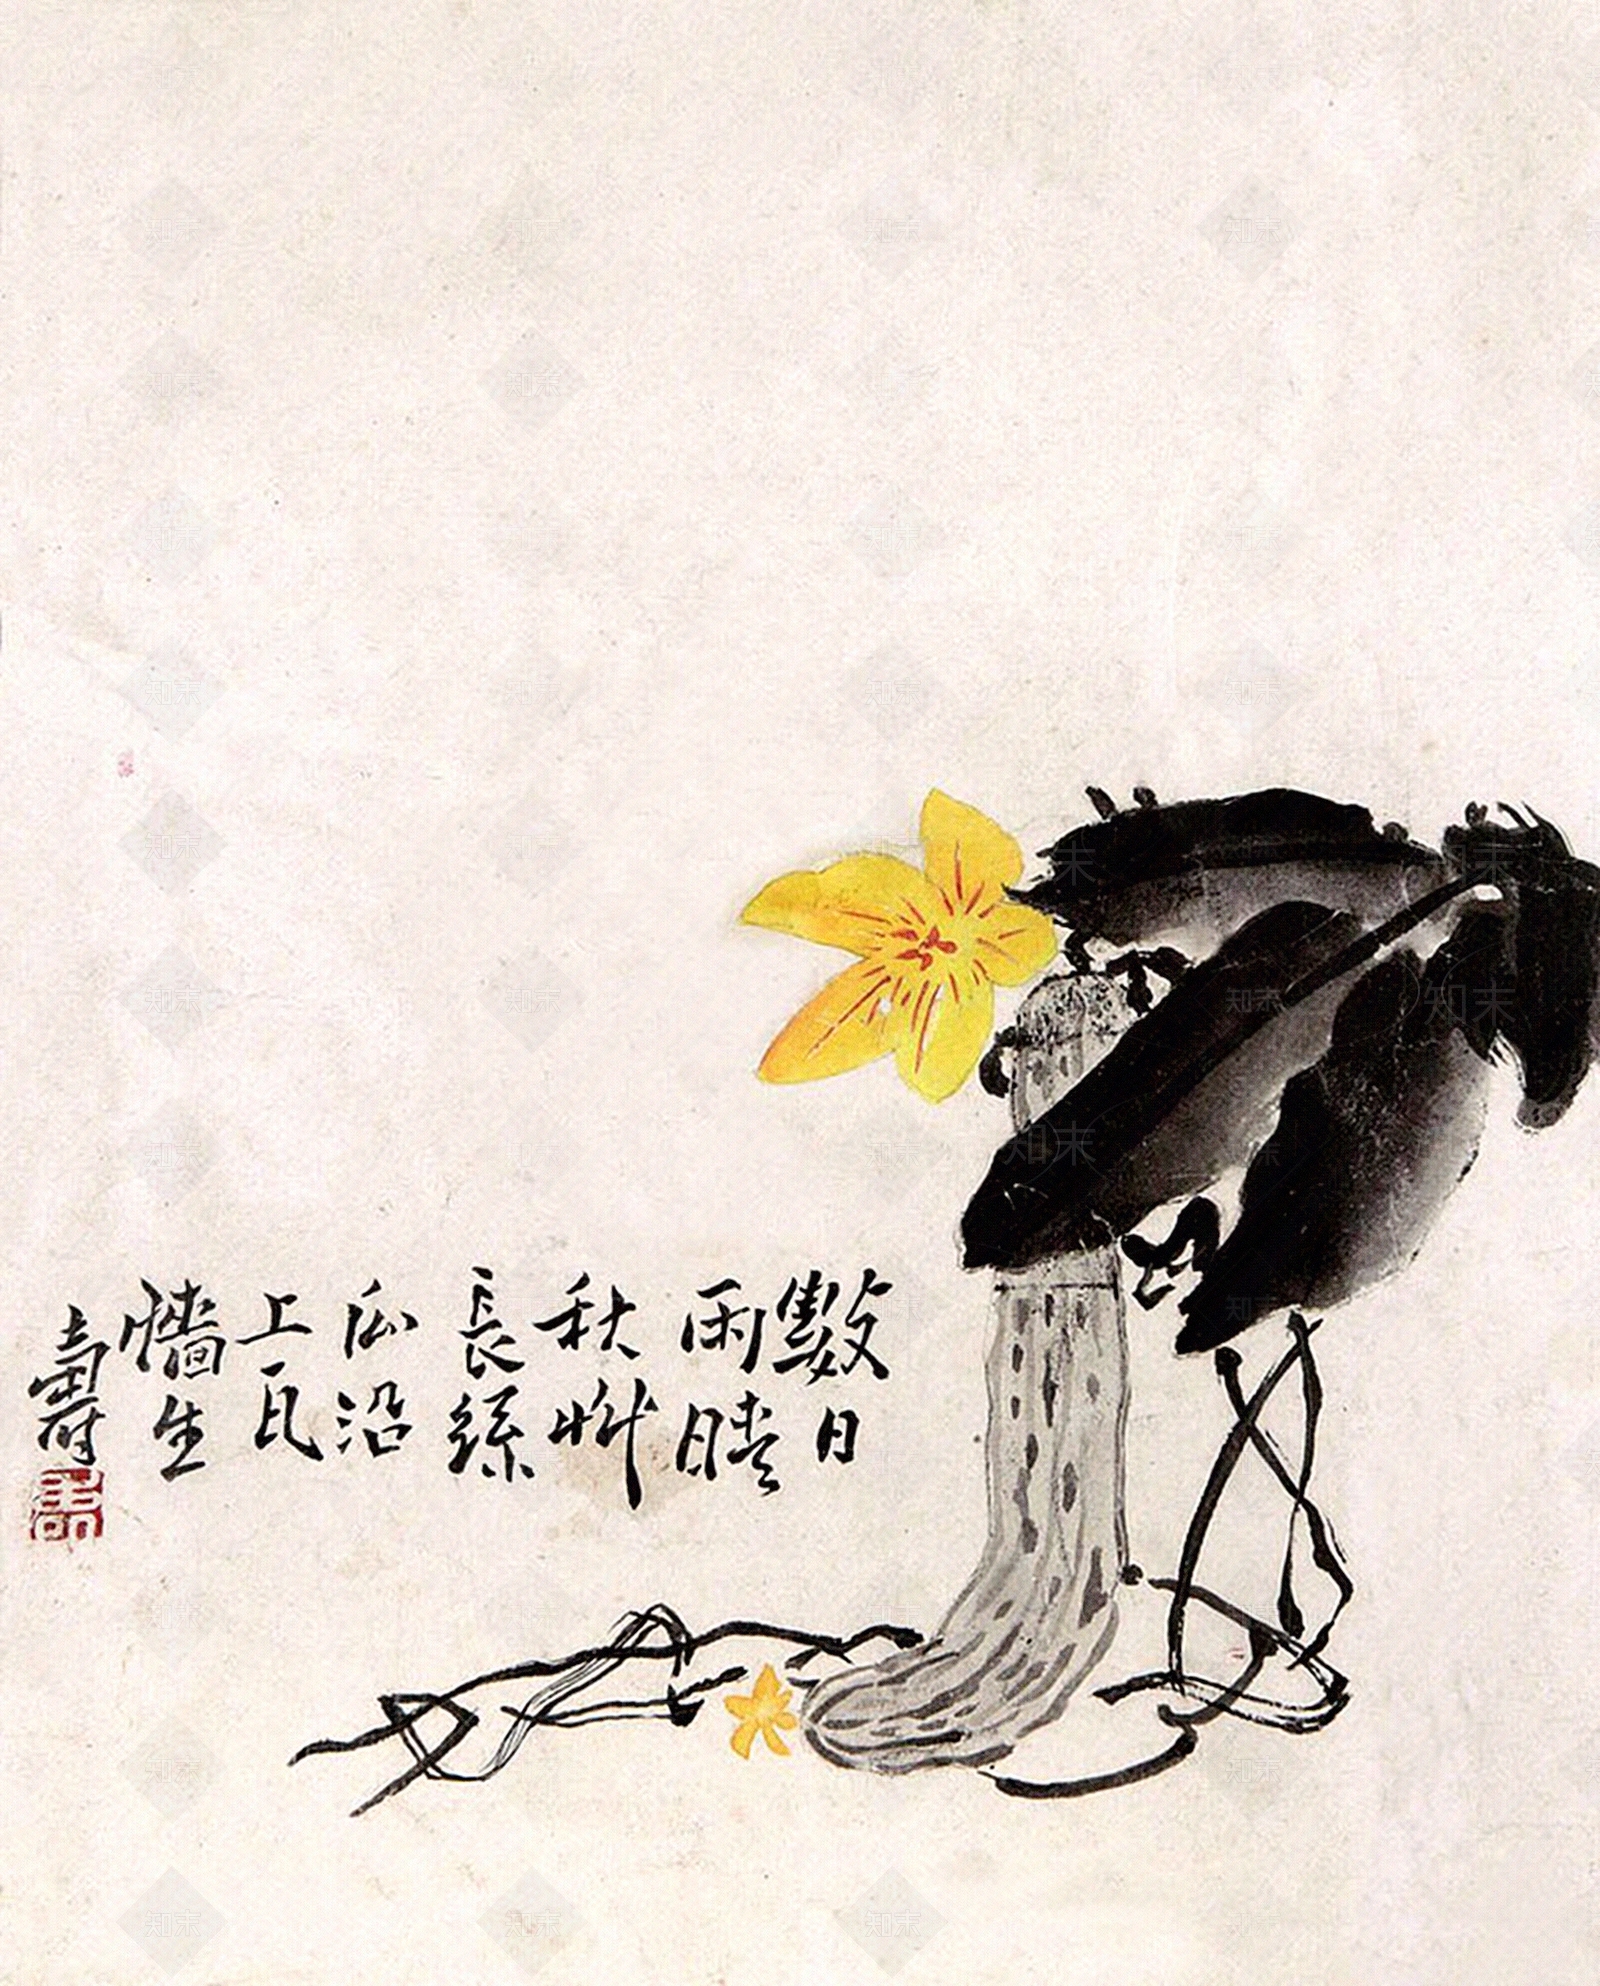 數日
雨晴
秋艸
長絲
瓜沿
上瓦
牆生
壽
知末